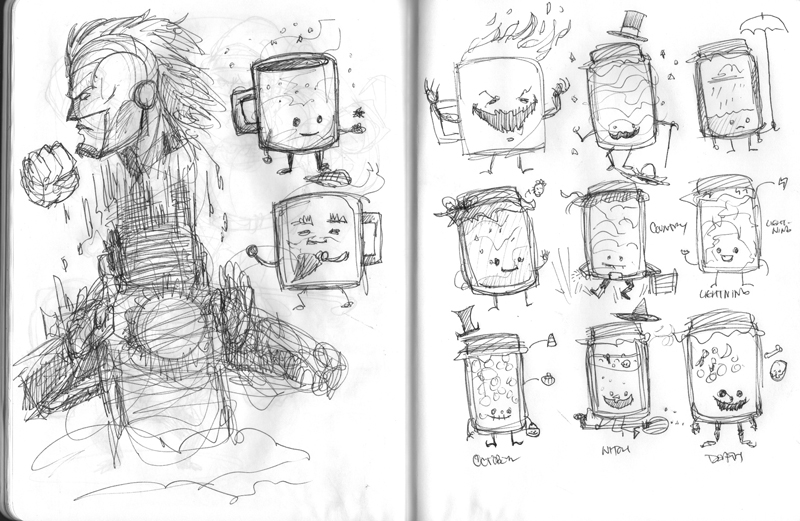 COUNTRY
LIGHT-
NING
LIGHTNING
OCTOBER
WITCH
DEATH